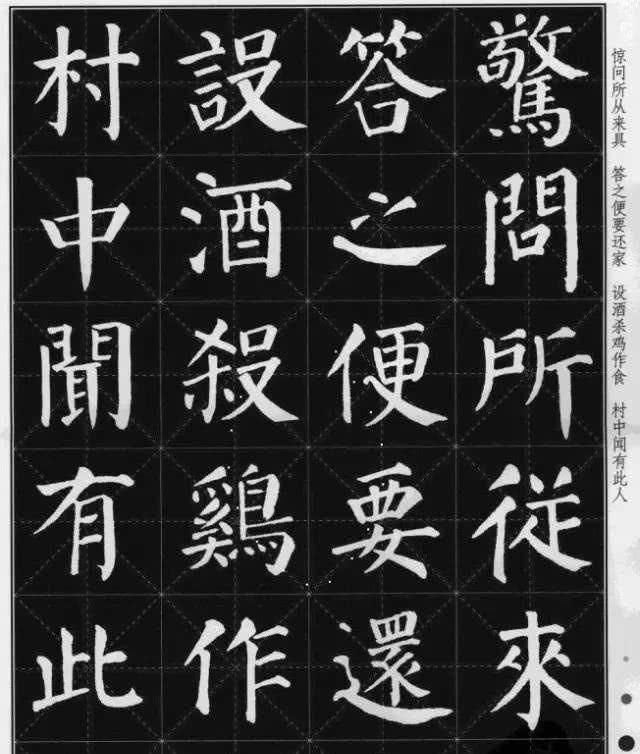 驚問所従來
答之便要還
設酒殺鷄作
村中聞有此
惊问所从来具 答之便要还家 设酒杀鸡作食 村中闻有此人